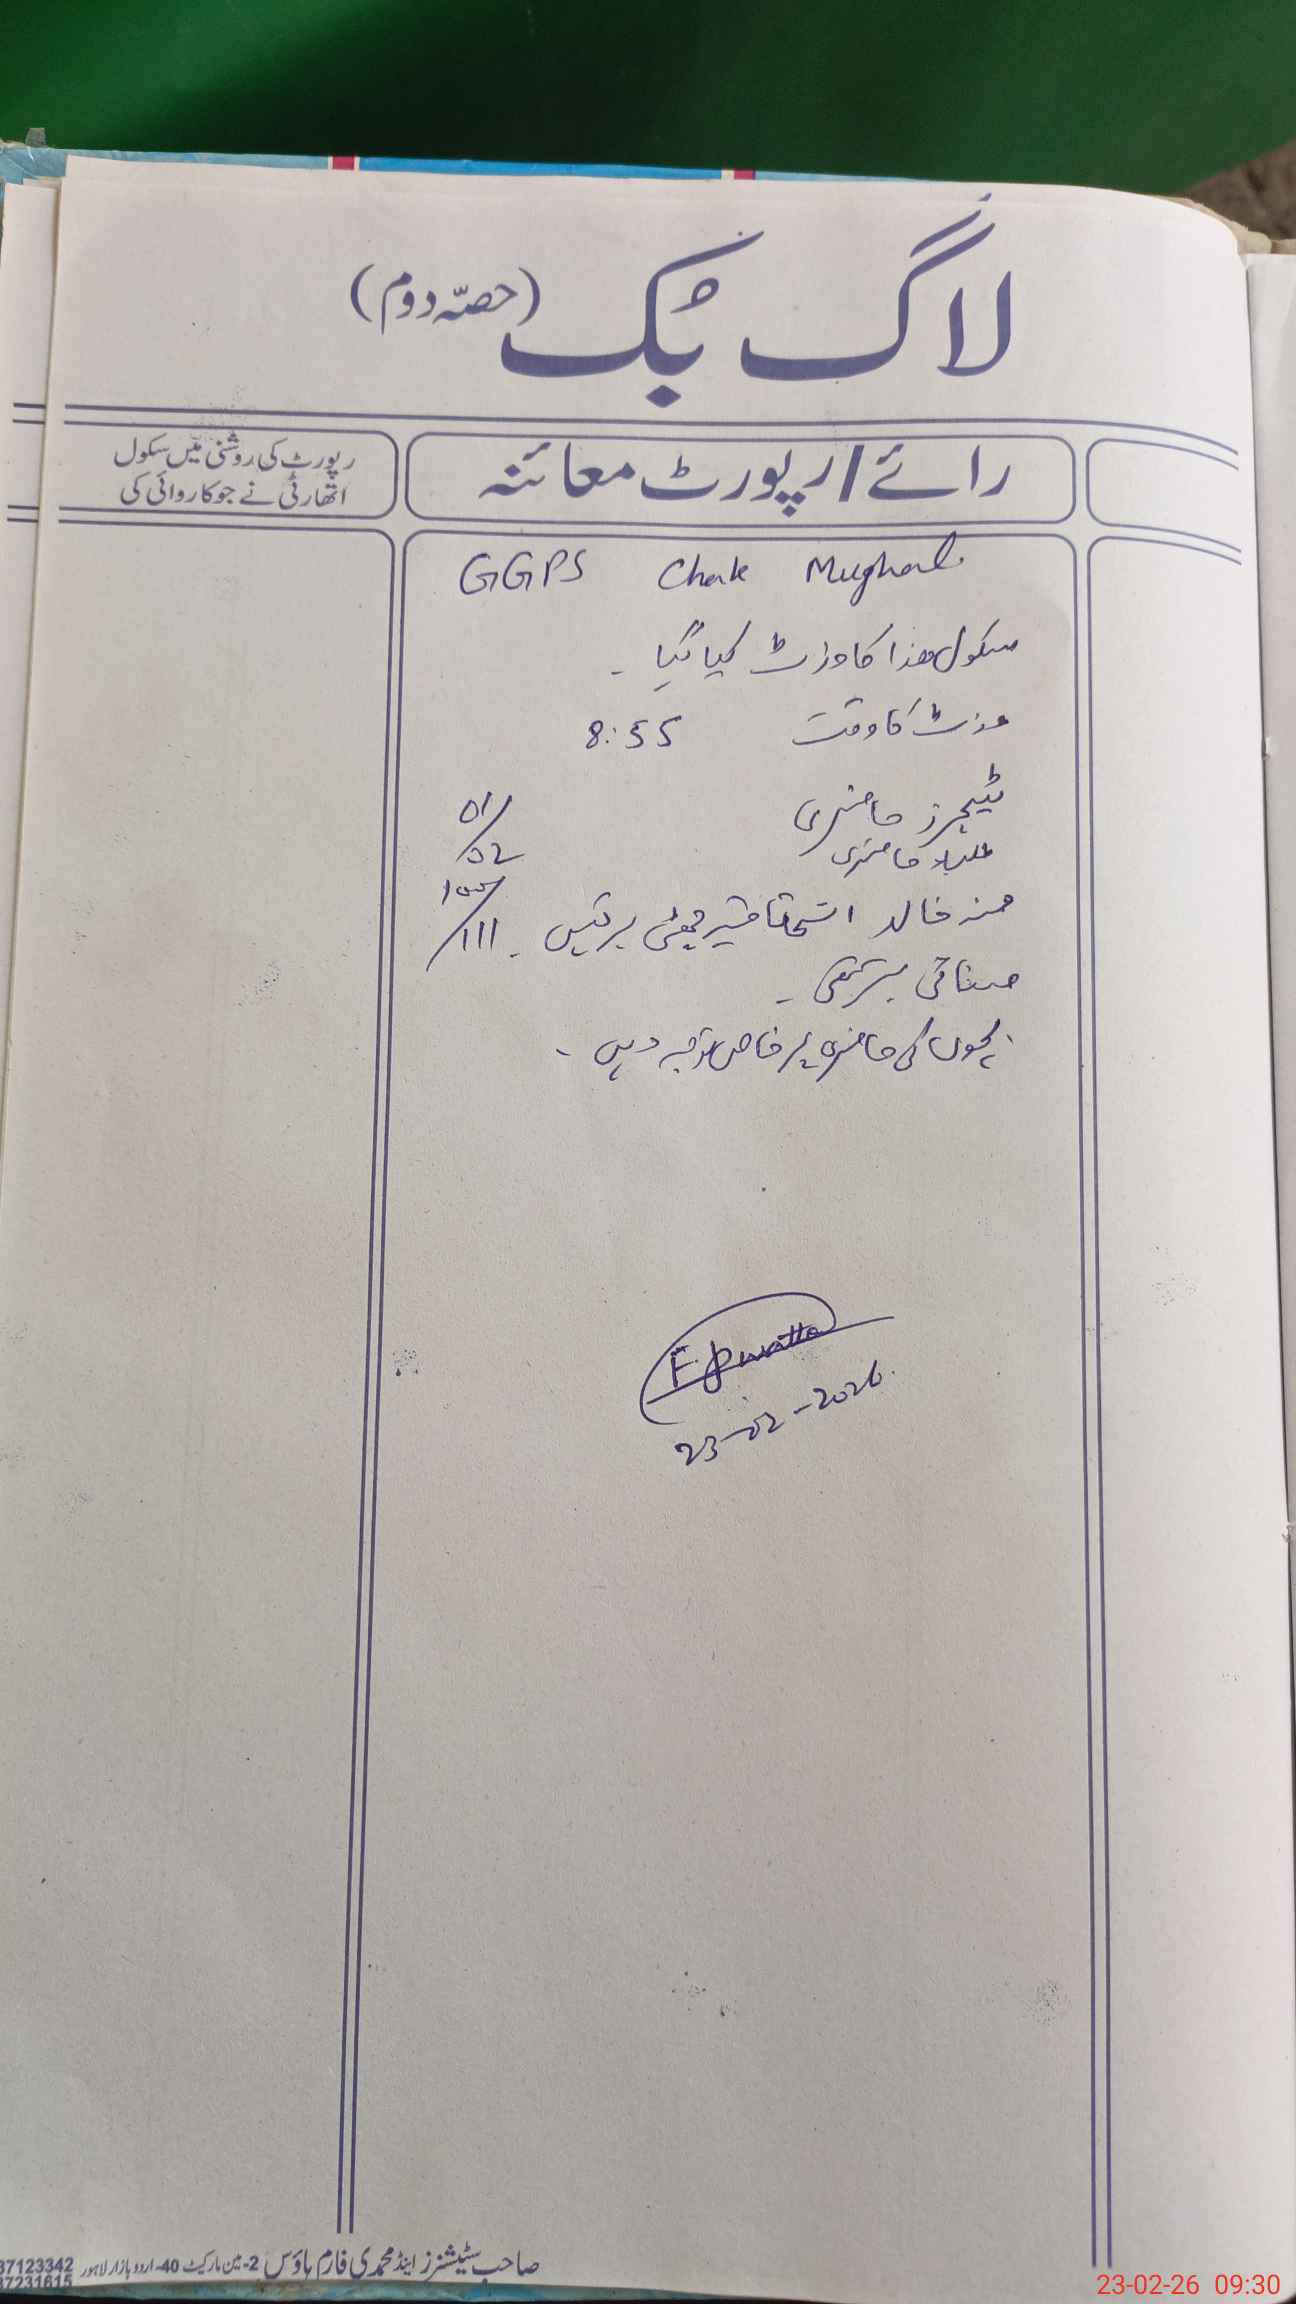 لاگ بُک (حصّہ دوم)
رائے / رپورٹ معائنہ
رپورٹ کی روشنی میں سکول
اتھارٹی نے جو کاروائی کی
GGPS Chak Mughal
سکول ھذا کا وزٹ کیا گیا ۔
وزٹ کا وقت 8:55
ٹیچرز حاضری 01/02
طلباء حاضری 100/111
خالد چھٹی پر تھیں ۔
صفائی بہتر تھی ۔
بچوں کی حاضری پر خاص توجہ دیں ۔
23-02-2026
صاحب سٹیشنرز اینڈ محمدی فارم ہاؤس 2-مین مارکیٹ 40-اردو بازار لاہور
37123342
37231615
23-02-26 09:30